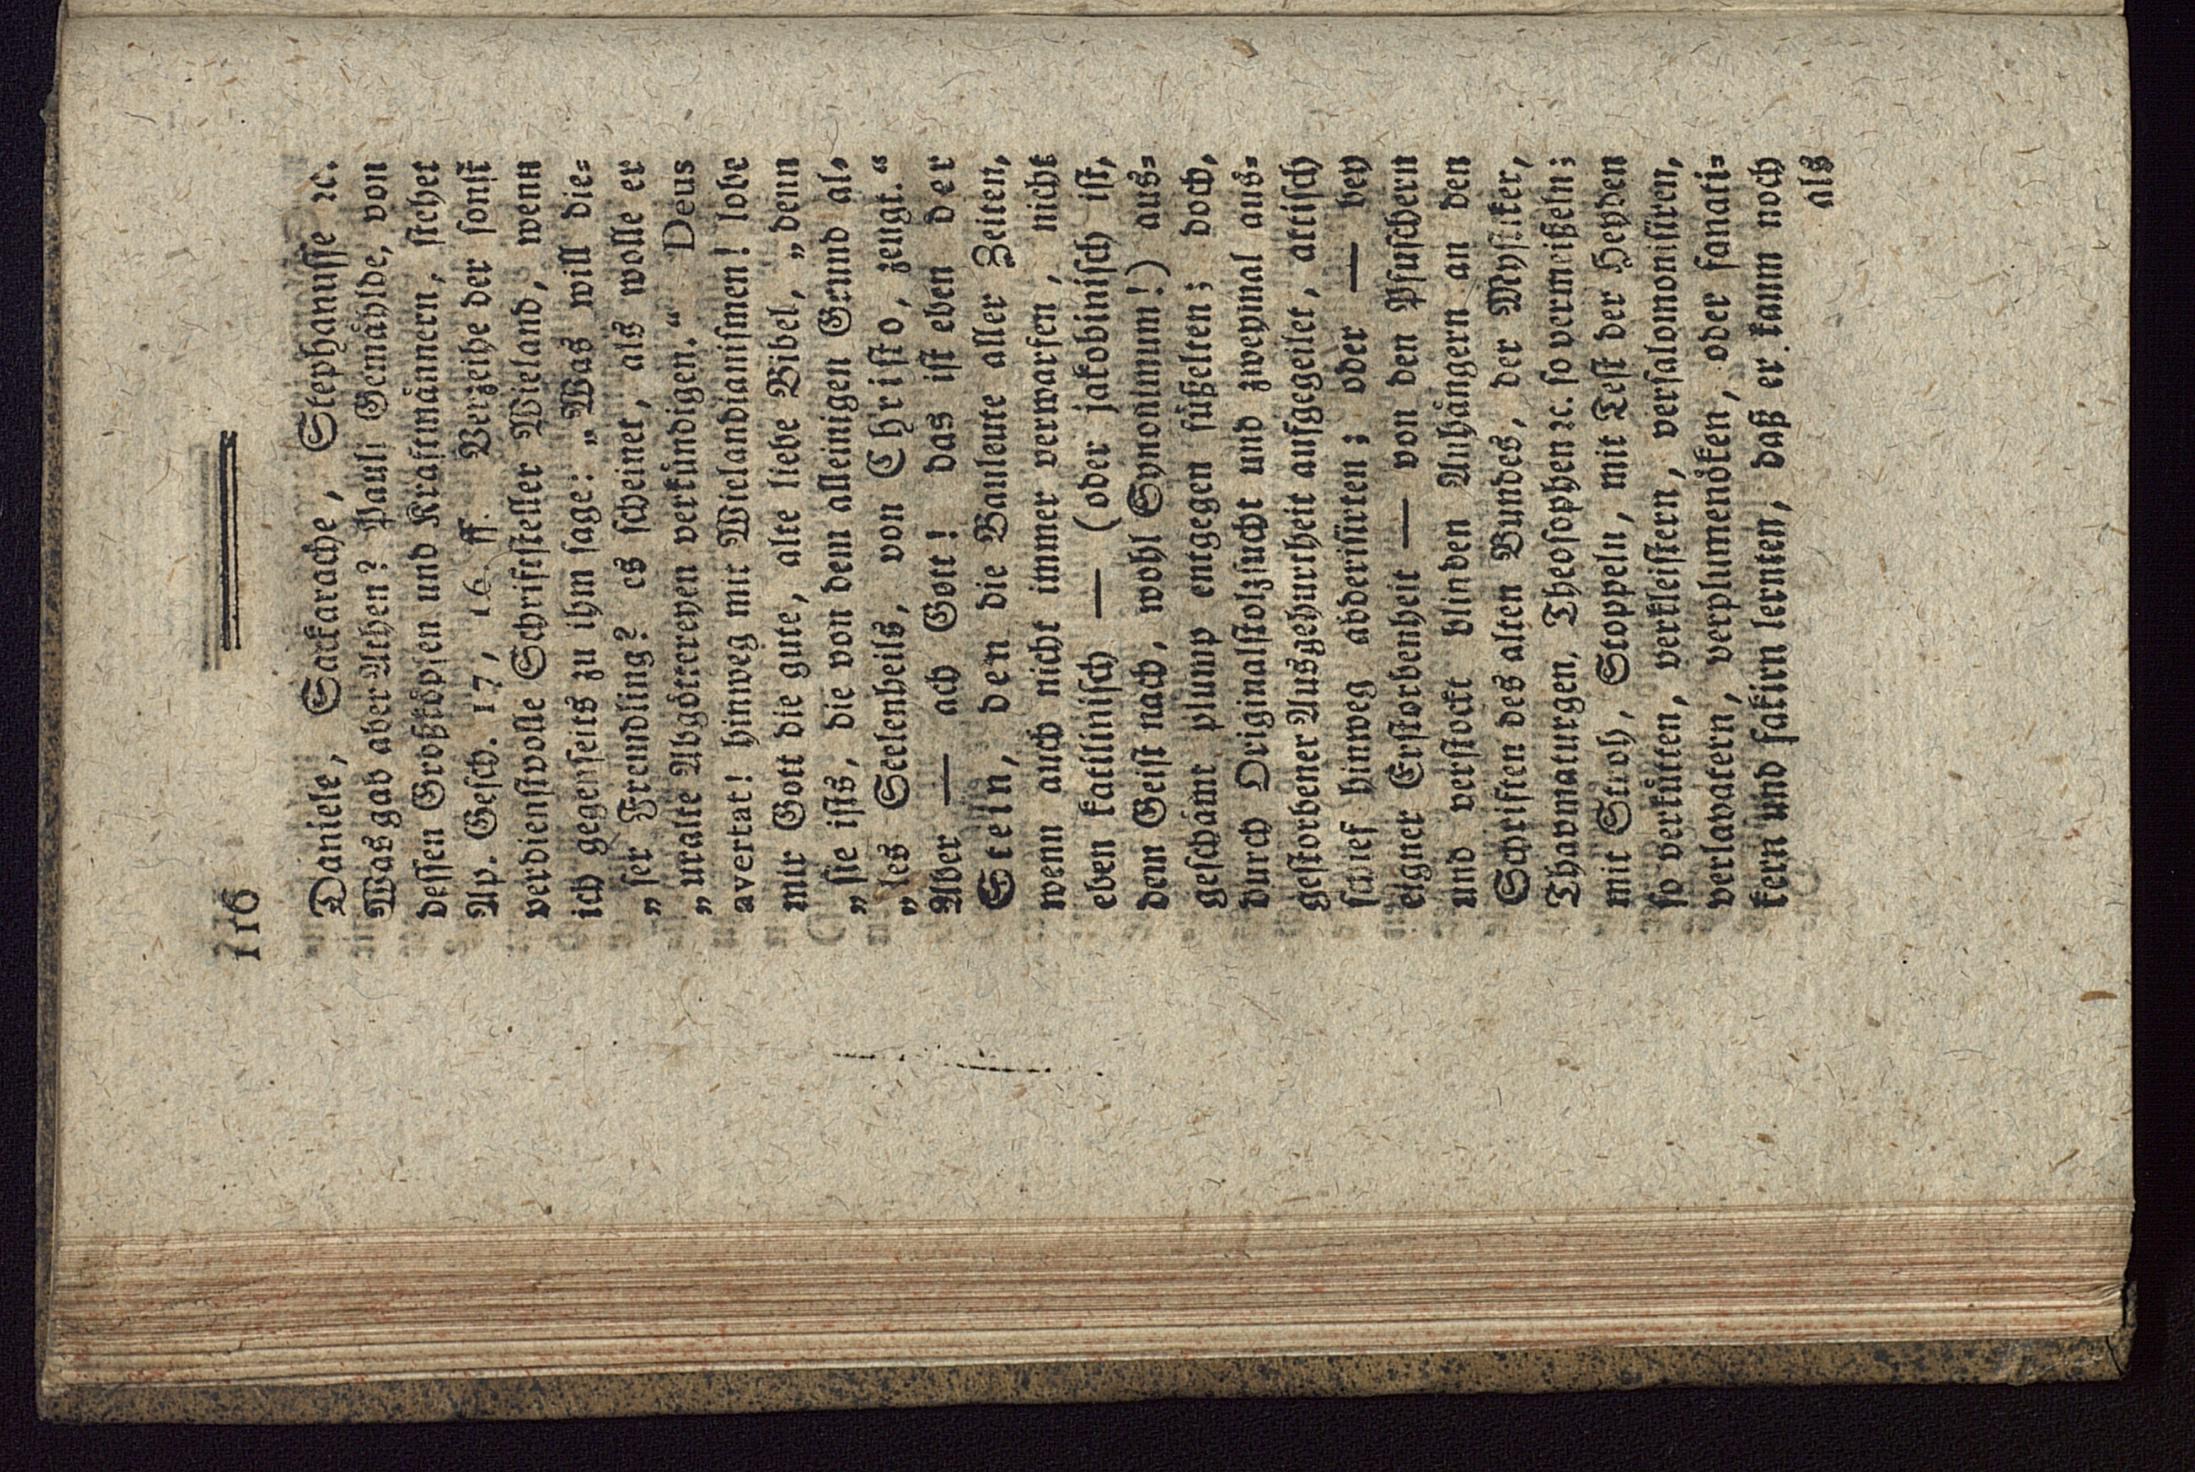 116
Daniele, Sakarache, Stephanusse ꝛc.
Was gab aber Athen? Pauli Gemählde, von
dessen Großköpfen und Kraftmännern, stehet
Ap. Gesch. 17, 16. ff. Verzeihe der sonst
verdienstvolle Schriftsteller Wieland, wenn
ich gegenseits zu ihm sage: „Was will die=
„ser Fremdling? es scheinet, als wolle er
„uralte Abgöttereyen verkündigen.“ Deus
avertat! hinweg mit Wielandianismen! lobe
mir Gott die gute, alte liebe Bibel, „denn
„sie ists, die von dem alleinigen Grund al=
„les Seelenheils, von Christo, zeugt.“
Aber — ach Gott! das ist eben der
Stein, den die Bauleute aller Zeiten,
wenn auch nicht immer verwarfen, nicht
eben katilinisch — (oder jakobinisch ist,
dem Geist nach, wohl Synonimum!) aus=
geschämt plump entgegen füßelten; doch,
durch Originalstolzsucht und zweymal aus=
gestorbener Ausgehurtheit aufgegeilet, attisch
schief hinweg abderisirten; oder — bey
eigner Erstorbenheit — von den Pfuschern
und verstockt blinden Anhängern an den
Schriften des alten Bundes, der Mystiker,
Thavmaturgen, Theosophen ꝛc. so vermeißeln;
mit Stroh, Stoppeln, mit Test der Heyden
so verkütten, verkleistern, versalomonisiren,
verlavatern, verplumenöken, oder fanati=
kern und fakirn lernten, daß er kaum noch
als